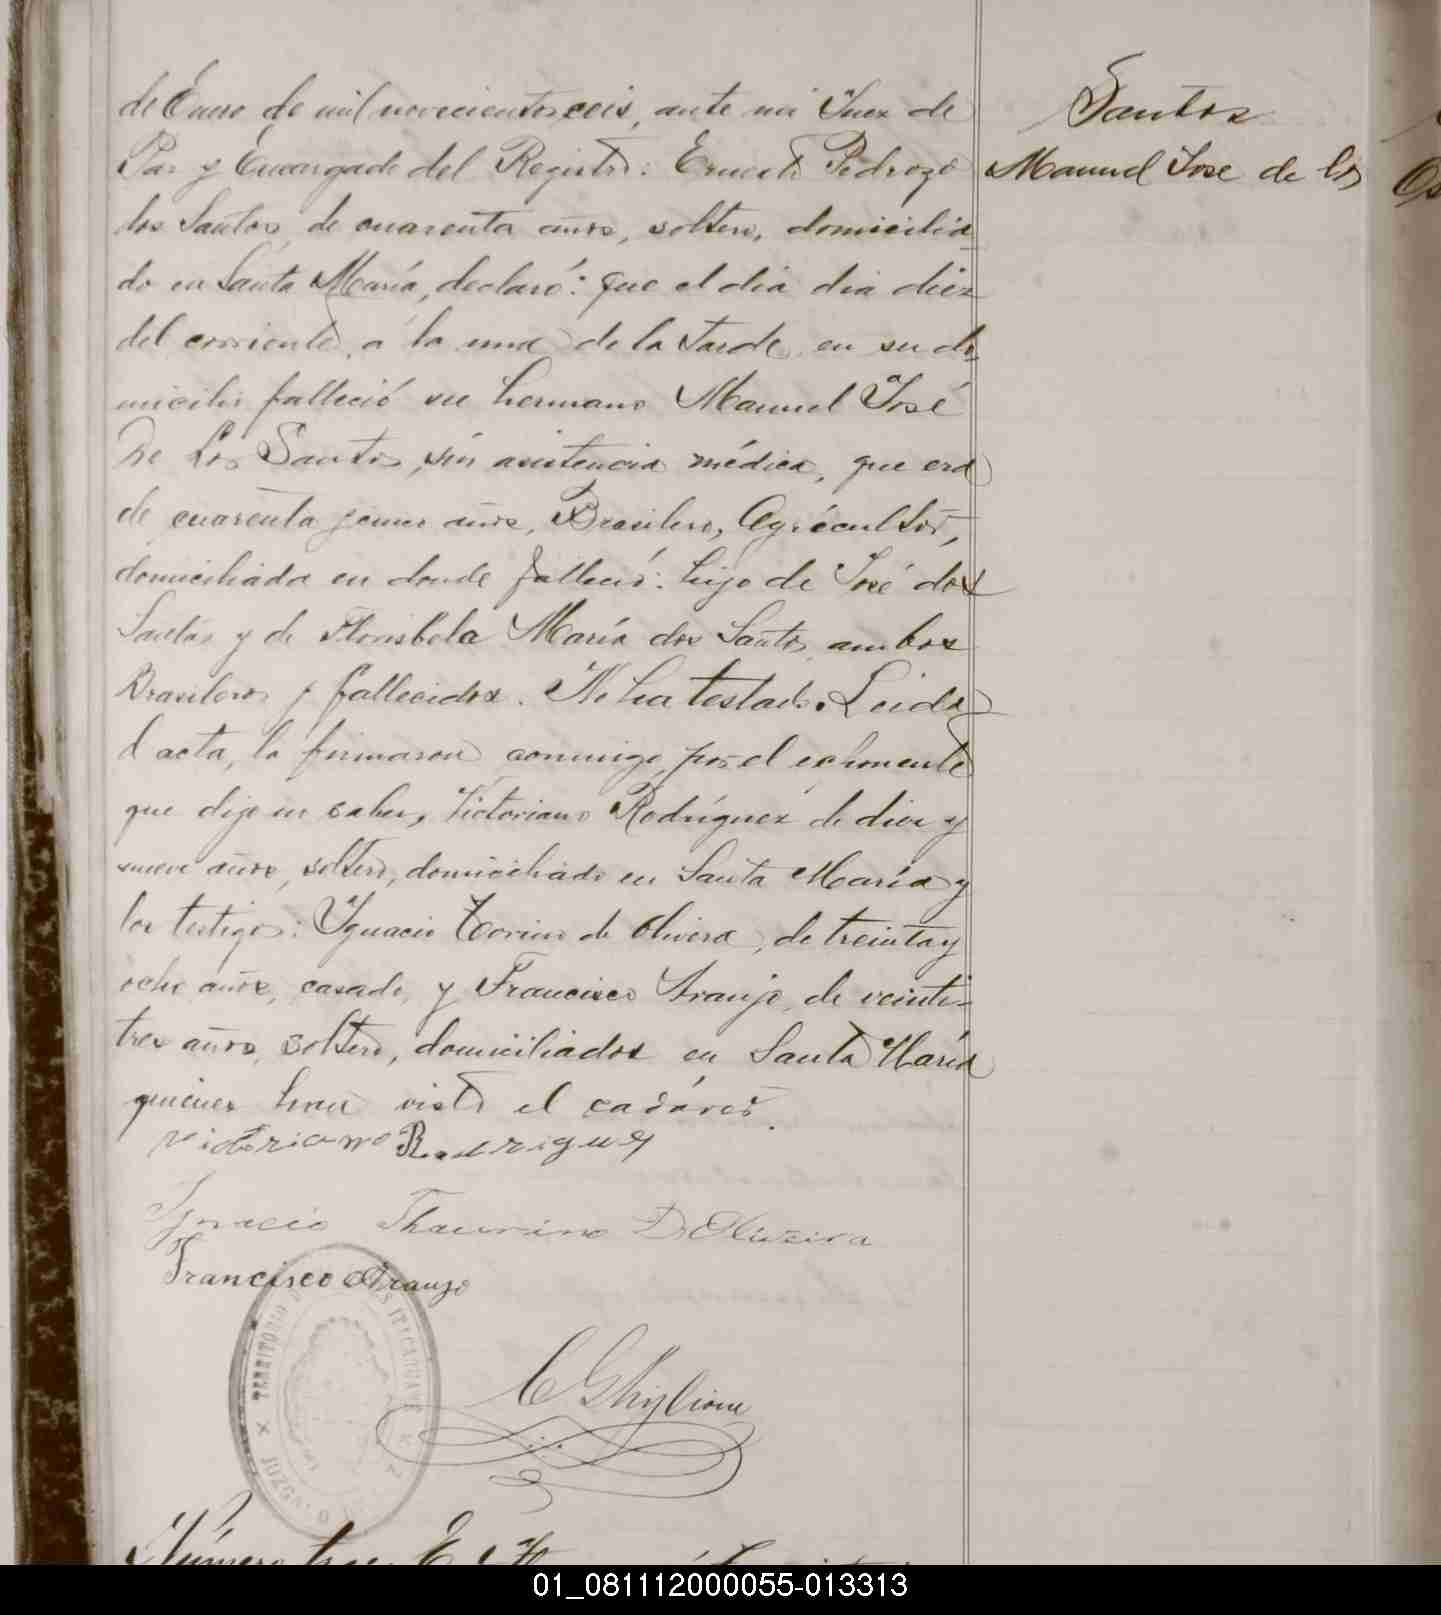 de Enero de mil novecientos seis, ante mi Juez de
Paz y Encargado del Registro: Ernesto Pedrozo
dos Santos, de cuarenta años, soltero, domicilia
do en Santa María, declaró: que el dia dia diez
del corriente, a la una de la tarde, en su do
micilio falleció su hermano Manuel José
De Los Santos, sin asistencia médica, que era
de cuarenta y años, Brasilero, Agricultor,
domiciliada en donde falleció: hijo de José dos
Santos y de Florisbela María dos Santos, ambos
Brasileros y fallecidos. No ha testado. Leida
l acta, la firmaron conmigo, por el exponente
que dijo no saber, Victoriano Rodríguez de diez y
nueve años, soltero, domiciliado en Santa María y
los testigos: Ygnacio de Olivera, de treinta y
ocho años, casado, y Francisco Araujo, de veinti-
tres años, soltero, domiciliados en Santa María
quienes han visto el cadáver.
Victoriano Rodriguez
Ygnacio Thaurino D Oliveira
Francisco Araujo
TERRITORIO D
JUZG
C Ghiglione
Número tres. E
Santos
Manuel Jose de los
Os
01_081112000055-013313